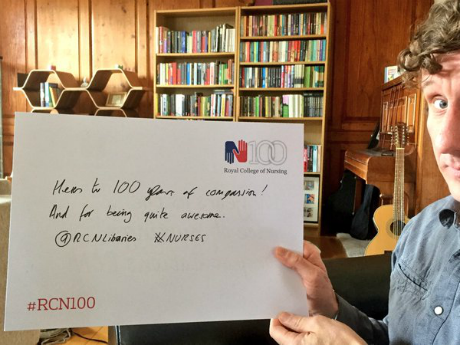 N100
Royal College of Nursing
Heres to 100 years of compassion!
And for being quite awesome.
@RCNLibraries XX NURSES
#RCN100